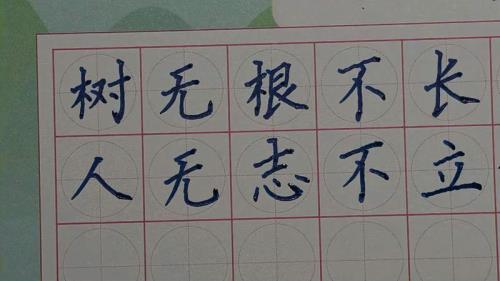 树无根不长
人无志不立